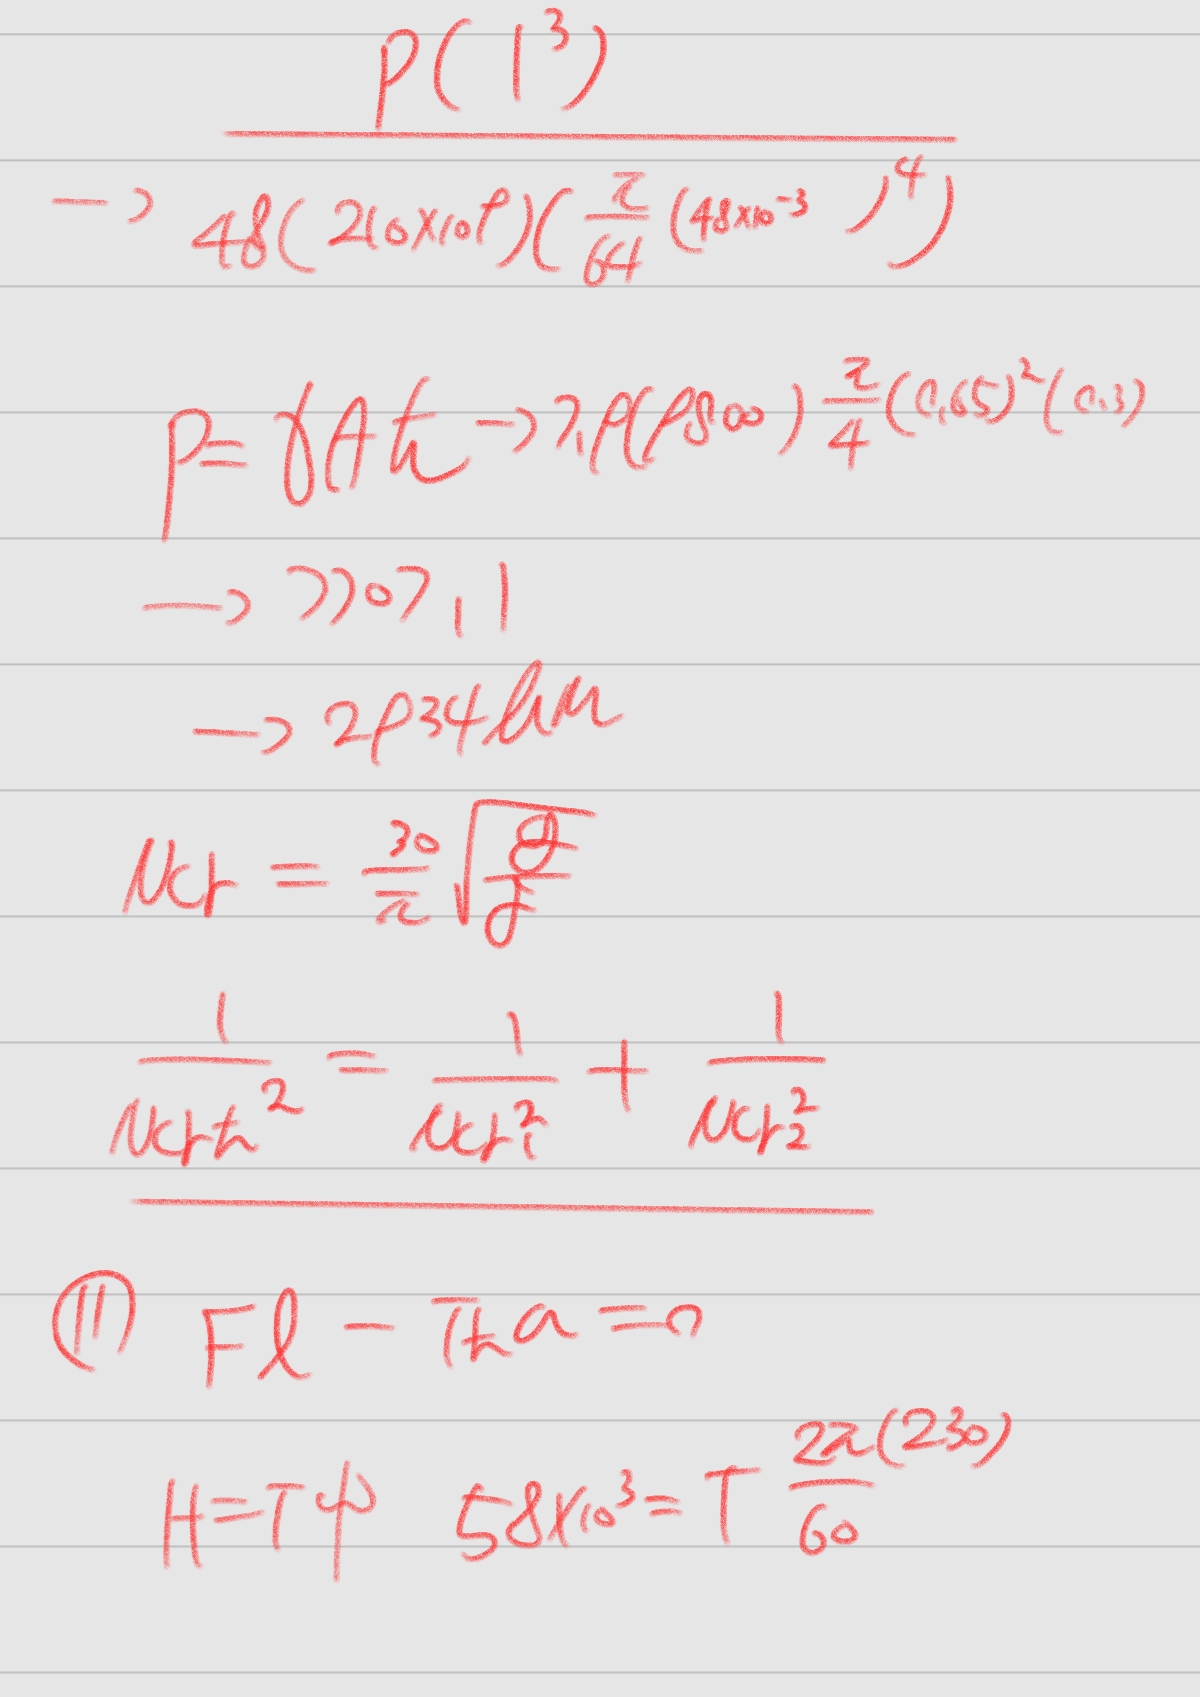 P(1³)
→ 48(210×10⁹)(π/64 (48×10⁻³)⁴)
P = γAt → 7.9(9800) π/4 (0.65)² (0.3)
→ 7707.1
→ 2934
Ncr = 30/π √(g/δ)
1/Ncrt² = 1/Ncr₁² + 1/Ncr₂²
⑪ Fl − Tta = 0
H = Tψ 58×10³ = T 2π(230)/60